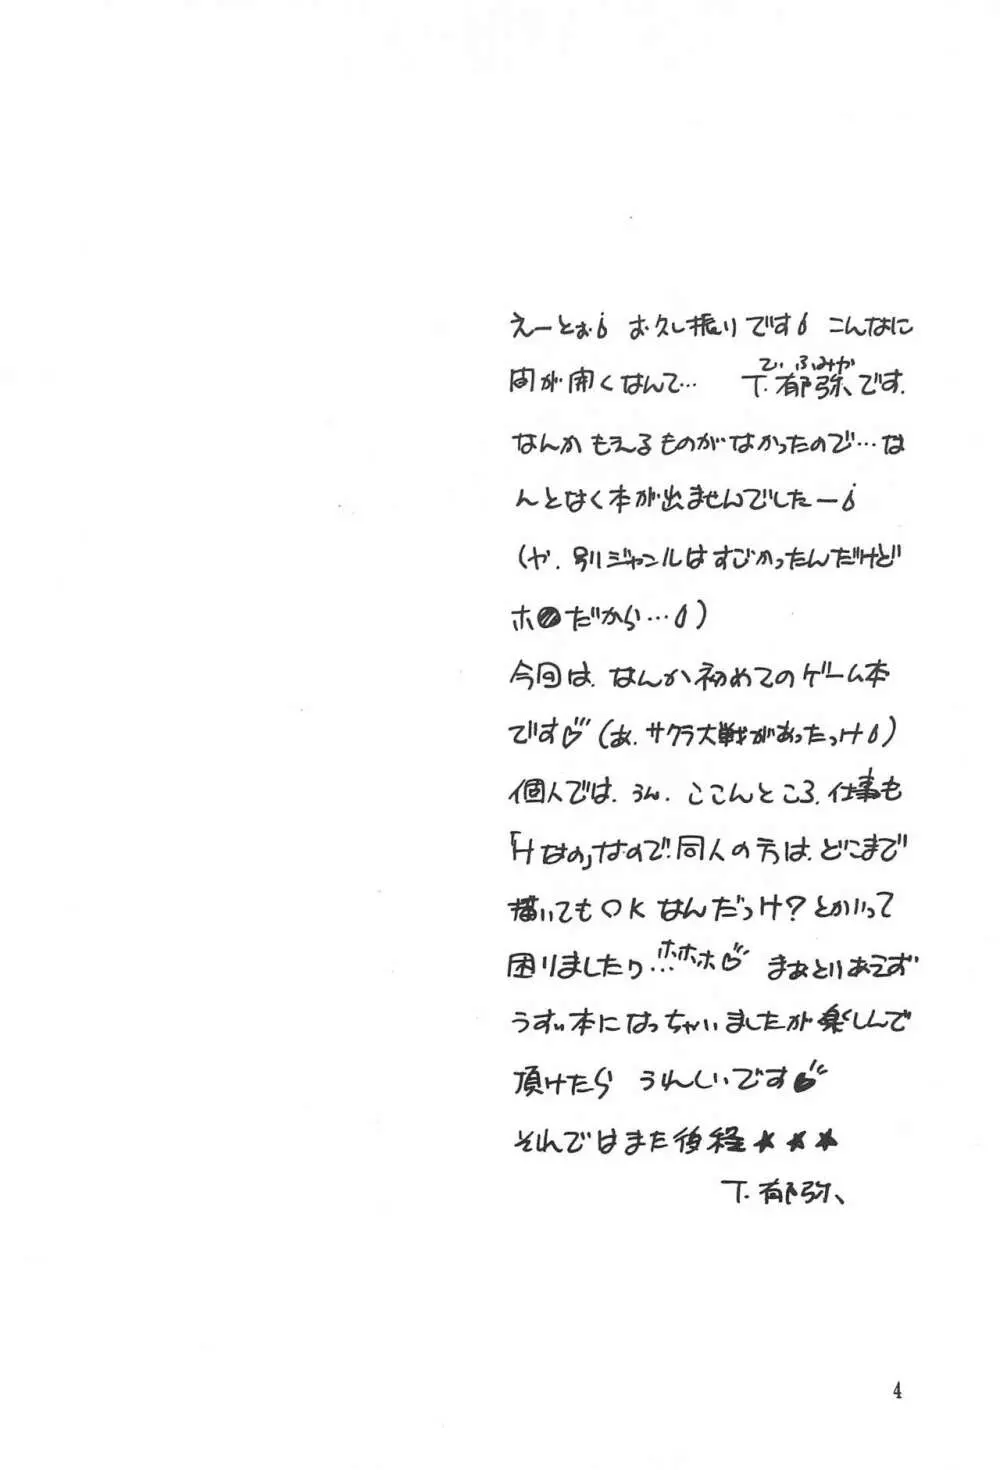 えーとぉ💧 お久し振りです💧 こんなに
間が開くなんて… T.郁弥、です.
てぃ ふみや
なんか もえるものがなかったので…な
んとなく本が出ませんでしたー💧
(や. 別ジャンルはすごかったんだけど
ホ●だから…💧)
今回は、なんか初めてのゲーム本
です♡(あ. サクラ大戦があったっけ💧)
個人では. うん. ここんところ. 仕事も
「Hなの」なので. 同人の方は. どこまで
描いてもOKなんだっけ?とかいって
困りましたり…ホホホ♡ まぁとりあえず
うすい本になっちゃいましたが楽しんで
頂けたら うれしいです♡
それではまた後程★★★
T.郁弥、
4